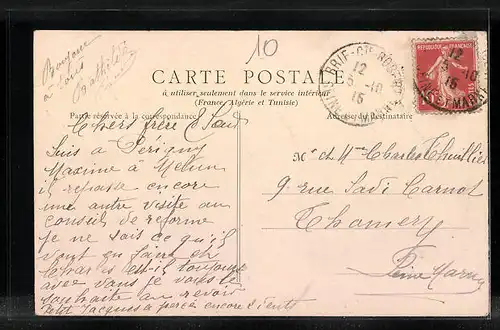 10
Bonjour
à tous
Mathilde
CARTE POSTALE
à utiliser seulement dans le service intérieur
(France, Algérie et Tunisie)
Partie réservée à la correspondance
Adresse du destinataire
BRIE-CTE-ROBERT
12
5-10
15
SEINE-ET-MARNE
RÉPUBLIQUE FRANÇAISE
12
5-10
15
SEINE-ET-MARNE
Chers frère &
Suis à Périgny
Maxime à Melun
il repasse encore
une autre visite au
conseil de reforme
je ne sais ce qu'il
vont en faire et
Charles est-il toujours
avec vous je vous le
souhaite au revoir
Petit Jacques a percé encore 2 dents
Mr et Mme Charles Thuillier
9 rue Sadi Carnot
Thomery
Seine Marne